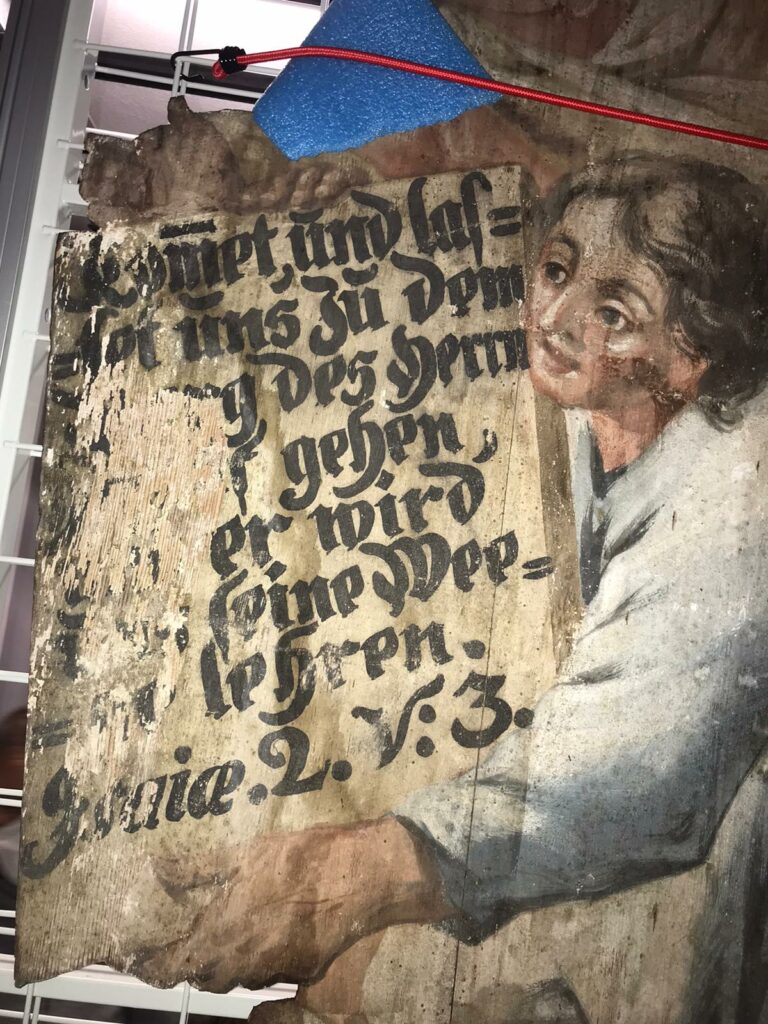 Kom̄et, ŭnd las=
=set ŭns Zŭ dem
des Herrn
gehen,
er wird
seine Wee=
lehren.
2. V: 3.